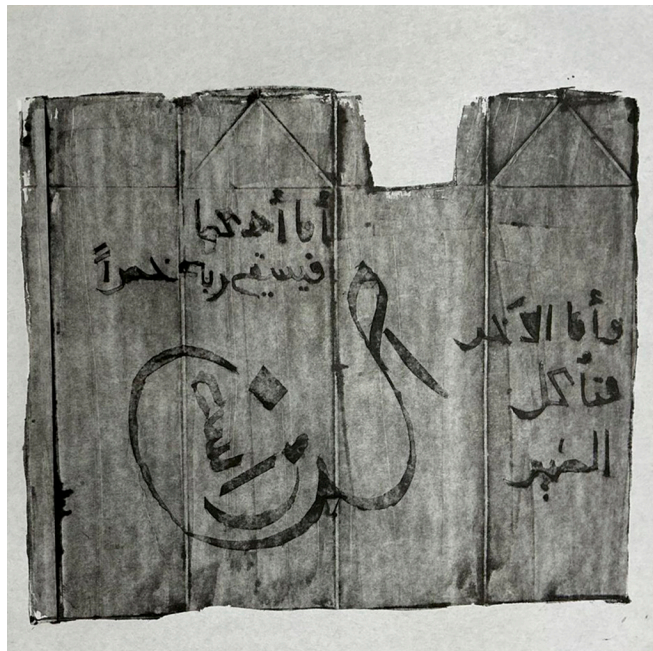 أما أحدكما
فيسقي ربه خمراً
وأما الآخر
فتأكل
الطير